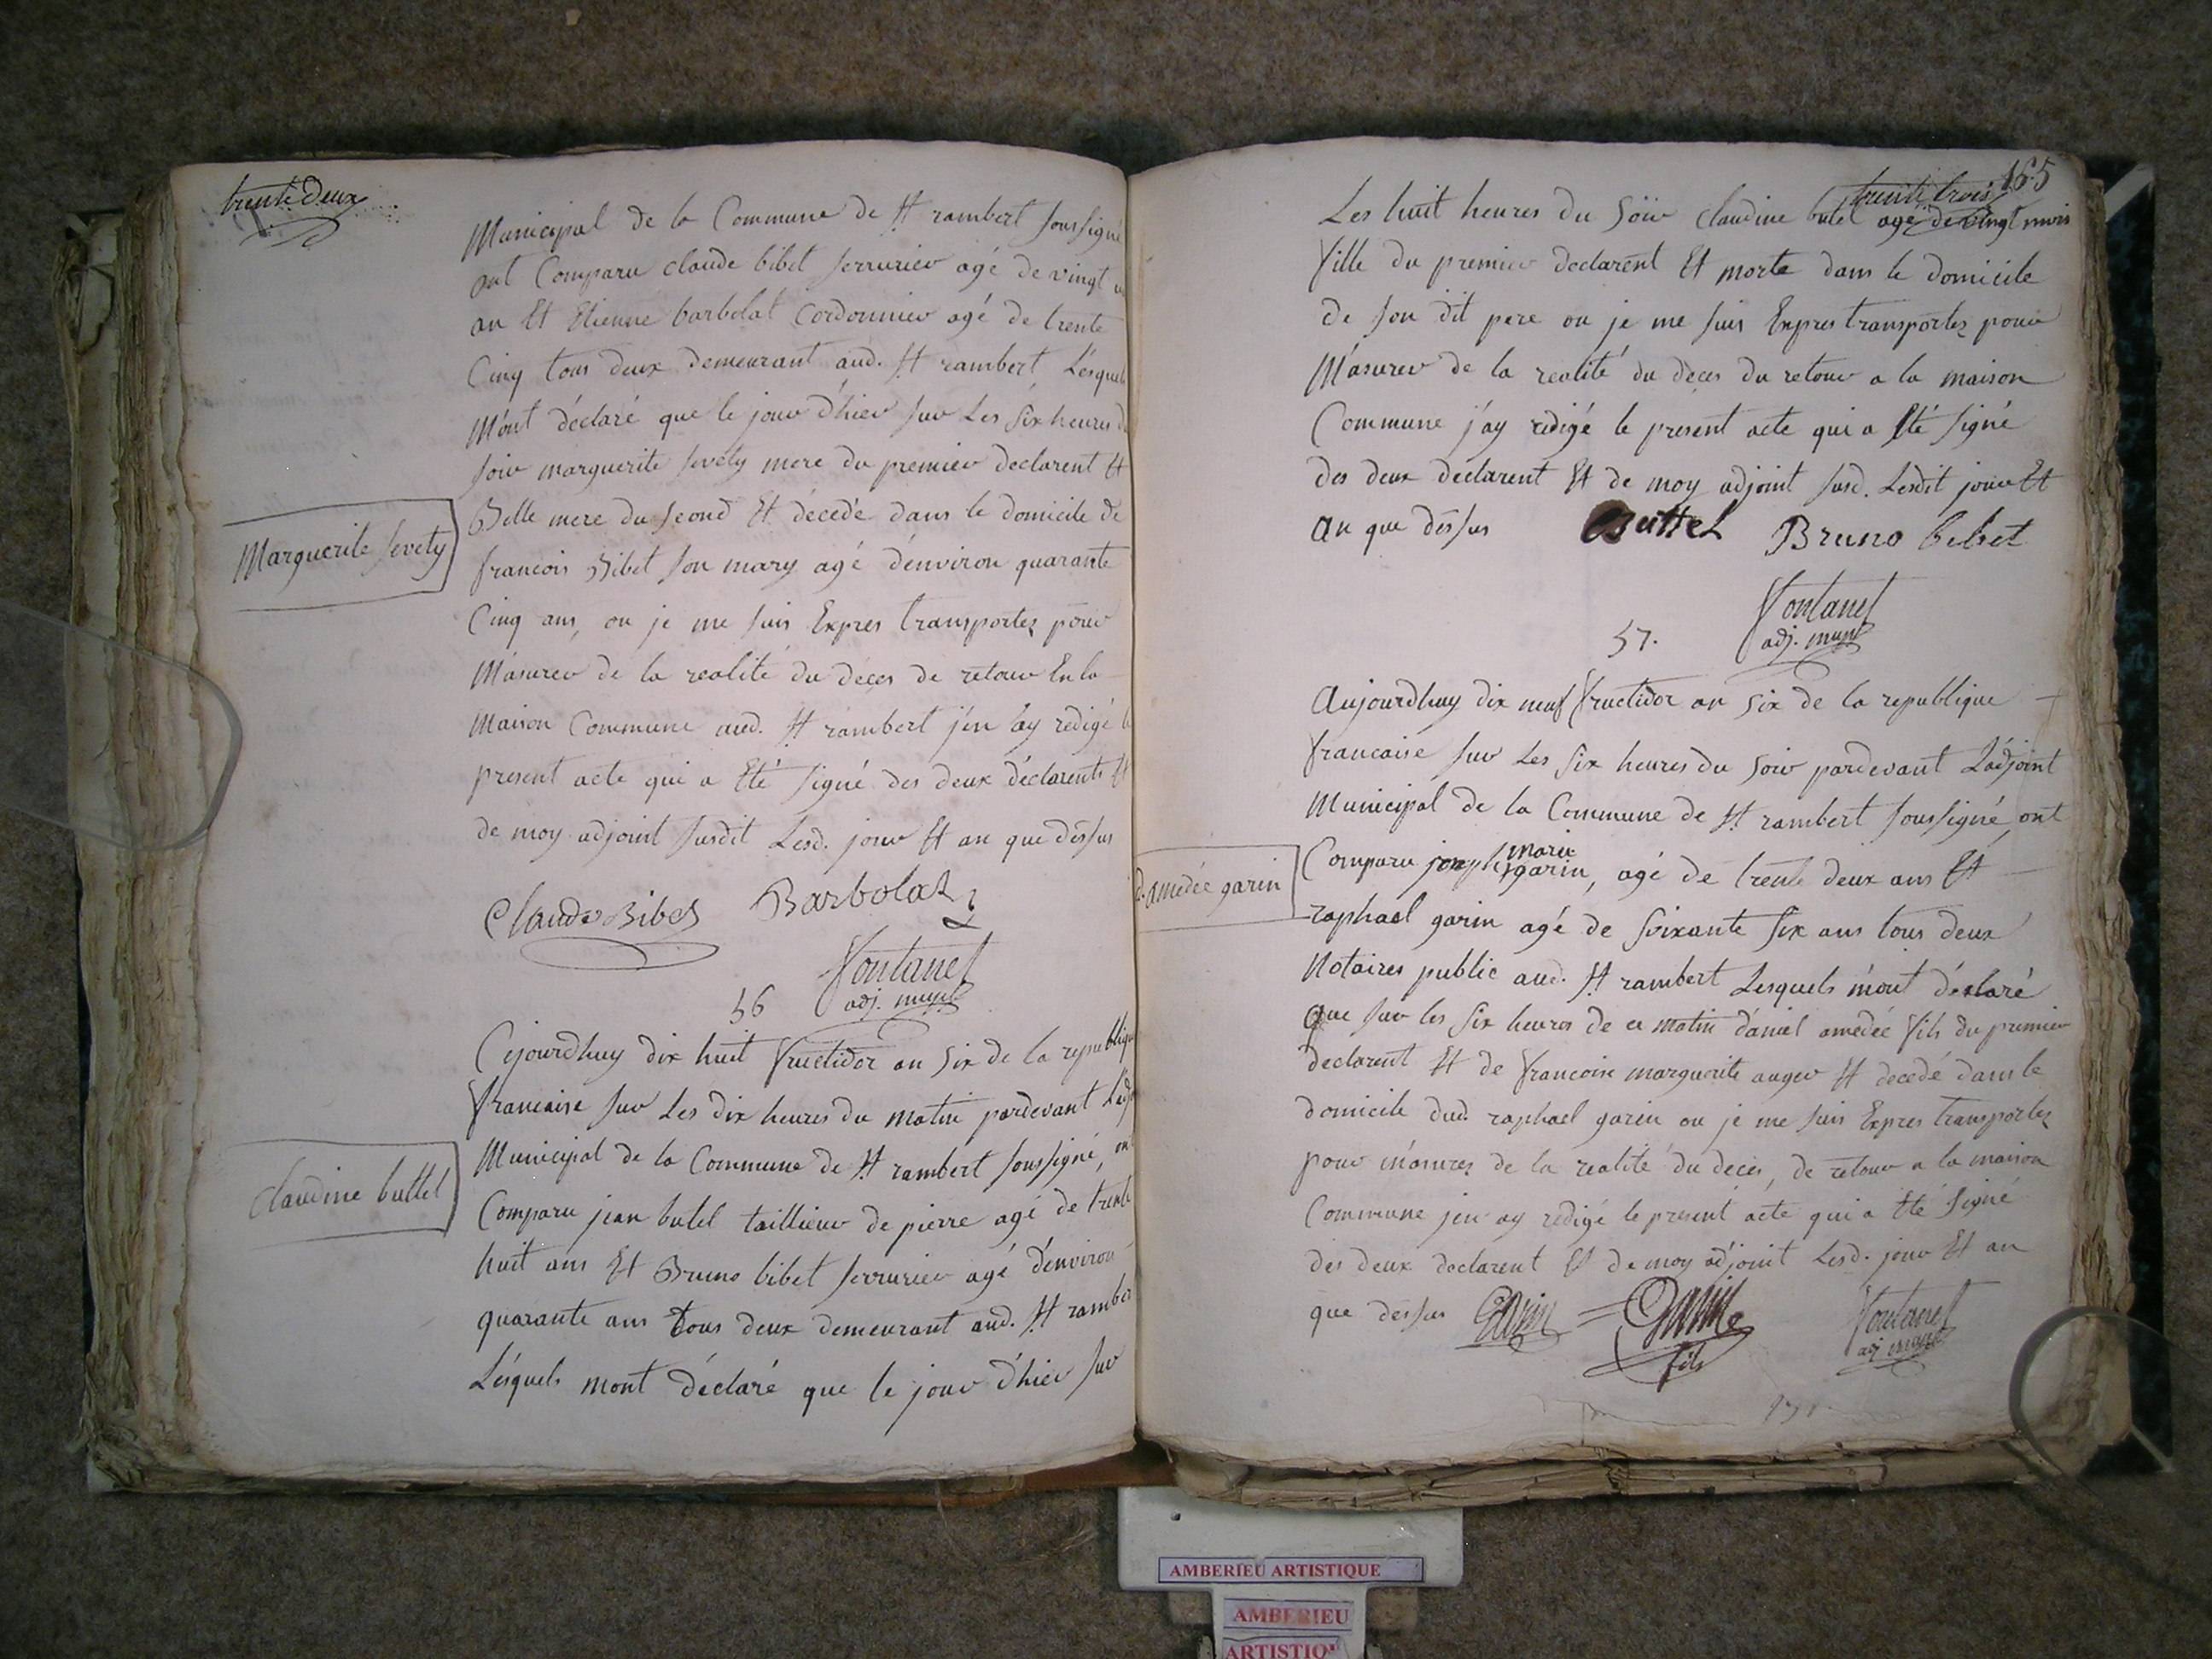 trente deux
Municipal de la Commune de St rambert soussigné
ont Comparu claude bibet serrurier agé de vingt
an Et Etienne barbolat Cordonnier agé de trente
Cinq tous deux demeurant aud. St rambert Lésquels
M'ont déclaré que le jour d'hier sur Les six heures du
soir marguerite sevety mere du premier declarent Et
Belle mere du second Et décedé dans le domicile de
Marguerite sevety
francois Bibet son mary agé d'environ quarante
Cinq ans, ou je me suis Expres transportez pour
M'asurer de la realité du déces de retour En la
Maison Commune aud. St rambert j'en ay redigé le
present acte qui a Eté signé des deux déclarents Et
de moy adjoint susdit Lesd. jour Et an que dessus
Claude Bibet Barbolat
Fontanel
adj. munpl
56
Cejourdhuy dix huit fructidor an six de la republique
francaise sur Les dix heures du matin pardevant L'adj
Municipal de la Commune de St rambert soussigné, ont
claudine buttel
Comparu jean butel taillieur de pierre agé de trente
huit ans Et Bruno bibet serrurier agé d'environ
quarante ans tous deux demeurant aud. St rambert
Lésquels mont déclaré que le jour d'hier sur
165
trente trois
Les huit heures du soir claudine butel agé de vingt mois
fille du premier declarent Et morte dans le domicile
de son dit pere ou je me suis Expres transportez pour
M'asurer de la realité du déces du retour a la maison
Commune j'ay redigé le present acte qui a Eté signé
des deux declarent Et de moy adjoint susd. Lesdit jour Et
an que dessus Buttel Bruno bibet
Fontanel
adj. munpl
57.
Aujourdhuy dix neuf fructidor an six de la republique
francaise sur Les six heures du soir pardevant L'adjoint
Municipal de la Commune de St rambert soussigné, ont
marie
Comparu joseph garin, agé de trente deux ans Et
d. amedée garin
raphael garin agé de soixante six ans tous deux
Notaires public aud. St rambert Lesquels m'ont déclaré
que sur les six heures de ce matin daniel amedée fils du premier
declarent Et de francoise marguerite auger Et decedé dans le
domicile dud. raphael garin ou je me suis Expres transportez
pour m'asurez de la realité du deces, de retour a la maison
Commune j'en ay redigé le present acte qui a Eté signé
des deux declarent Et de moy adjoint Lesd. jour Et an
que dessus Garin Garin
fils
Fontanel
adj munpl
AMBERIEU ARTISTIQUE
AMBERIEU
ARTISTIQ